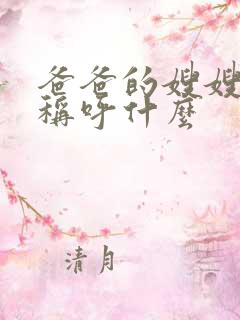 爸爸的嫂嫂
稱呼什麼
清月